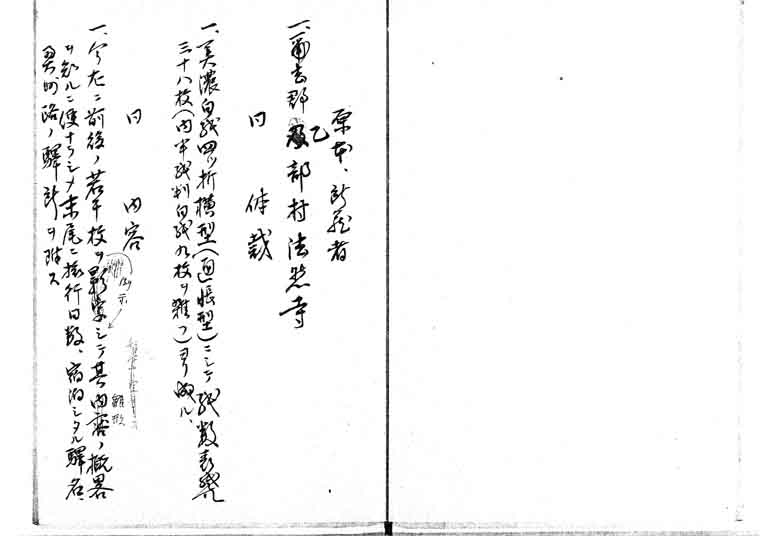 原本、所蔵者
一、爾志郡乙部村法然寺
同 体裁
一、美濃白紙四ツ折横型(通帳型)ニシテ紙数表紙共
三十八枚(内半紙判白紙九枚ヲ雑フ)ヨリ成ル、
同 内容
一、今左ニ前後ノ若干枚ヲ影写シテ其内容ノ概畧
ヲ知ルニ便ナラシメ末尾ニ旅行日数、宿泊シタル驛名、
ノ驛所ヲ附ス